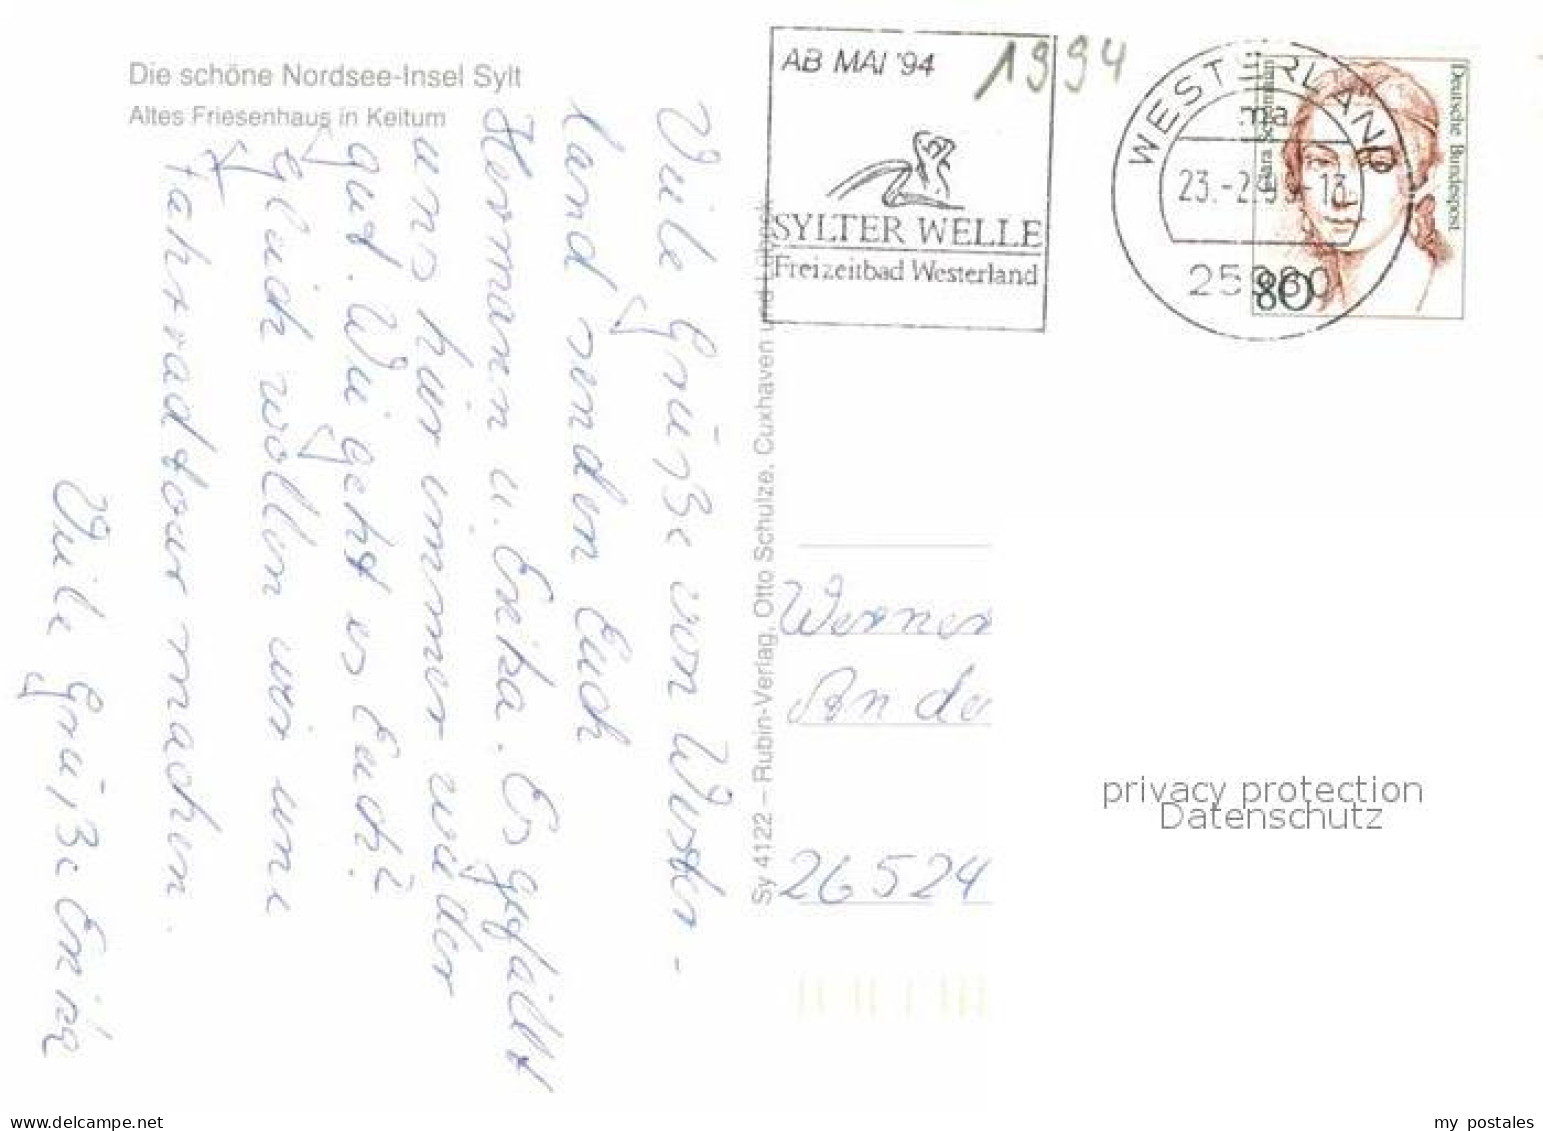 Die schöne Nordsee-Insel Sylt
Altes Friesenhaus in Keitum
Viele Grüße von Wester-
land senden Euch
Hermann u. Erika. Es gefällt
uns hier immer wieder
gut. Wie geht es Euch?
Gleich wollen wir eine
Fahrradtour machen.
Viele Grüße Erika
Sy 4122 – Rubin-Verlag, Otto Schulze, Cuxhaven und Lübeck
AB MAI '94
1994
SYLTER WELLE
Freizeitbad Westerland
WESTERLAND
ma
23.-2.94-13
25980
Clara Schumann
Deutsche Bundespost
80
Werner
An de
26524
privacy protection
Datenschutz
my postales